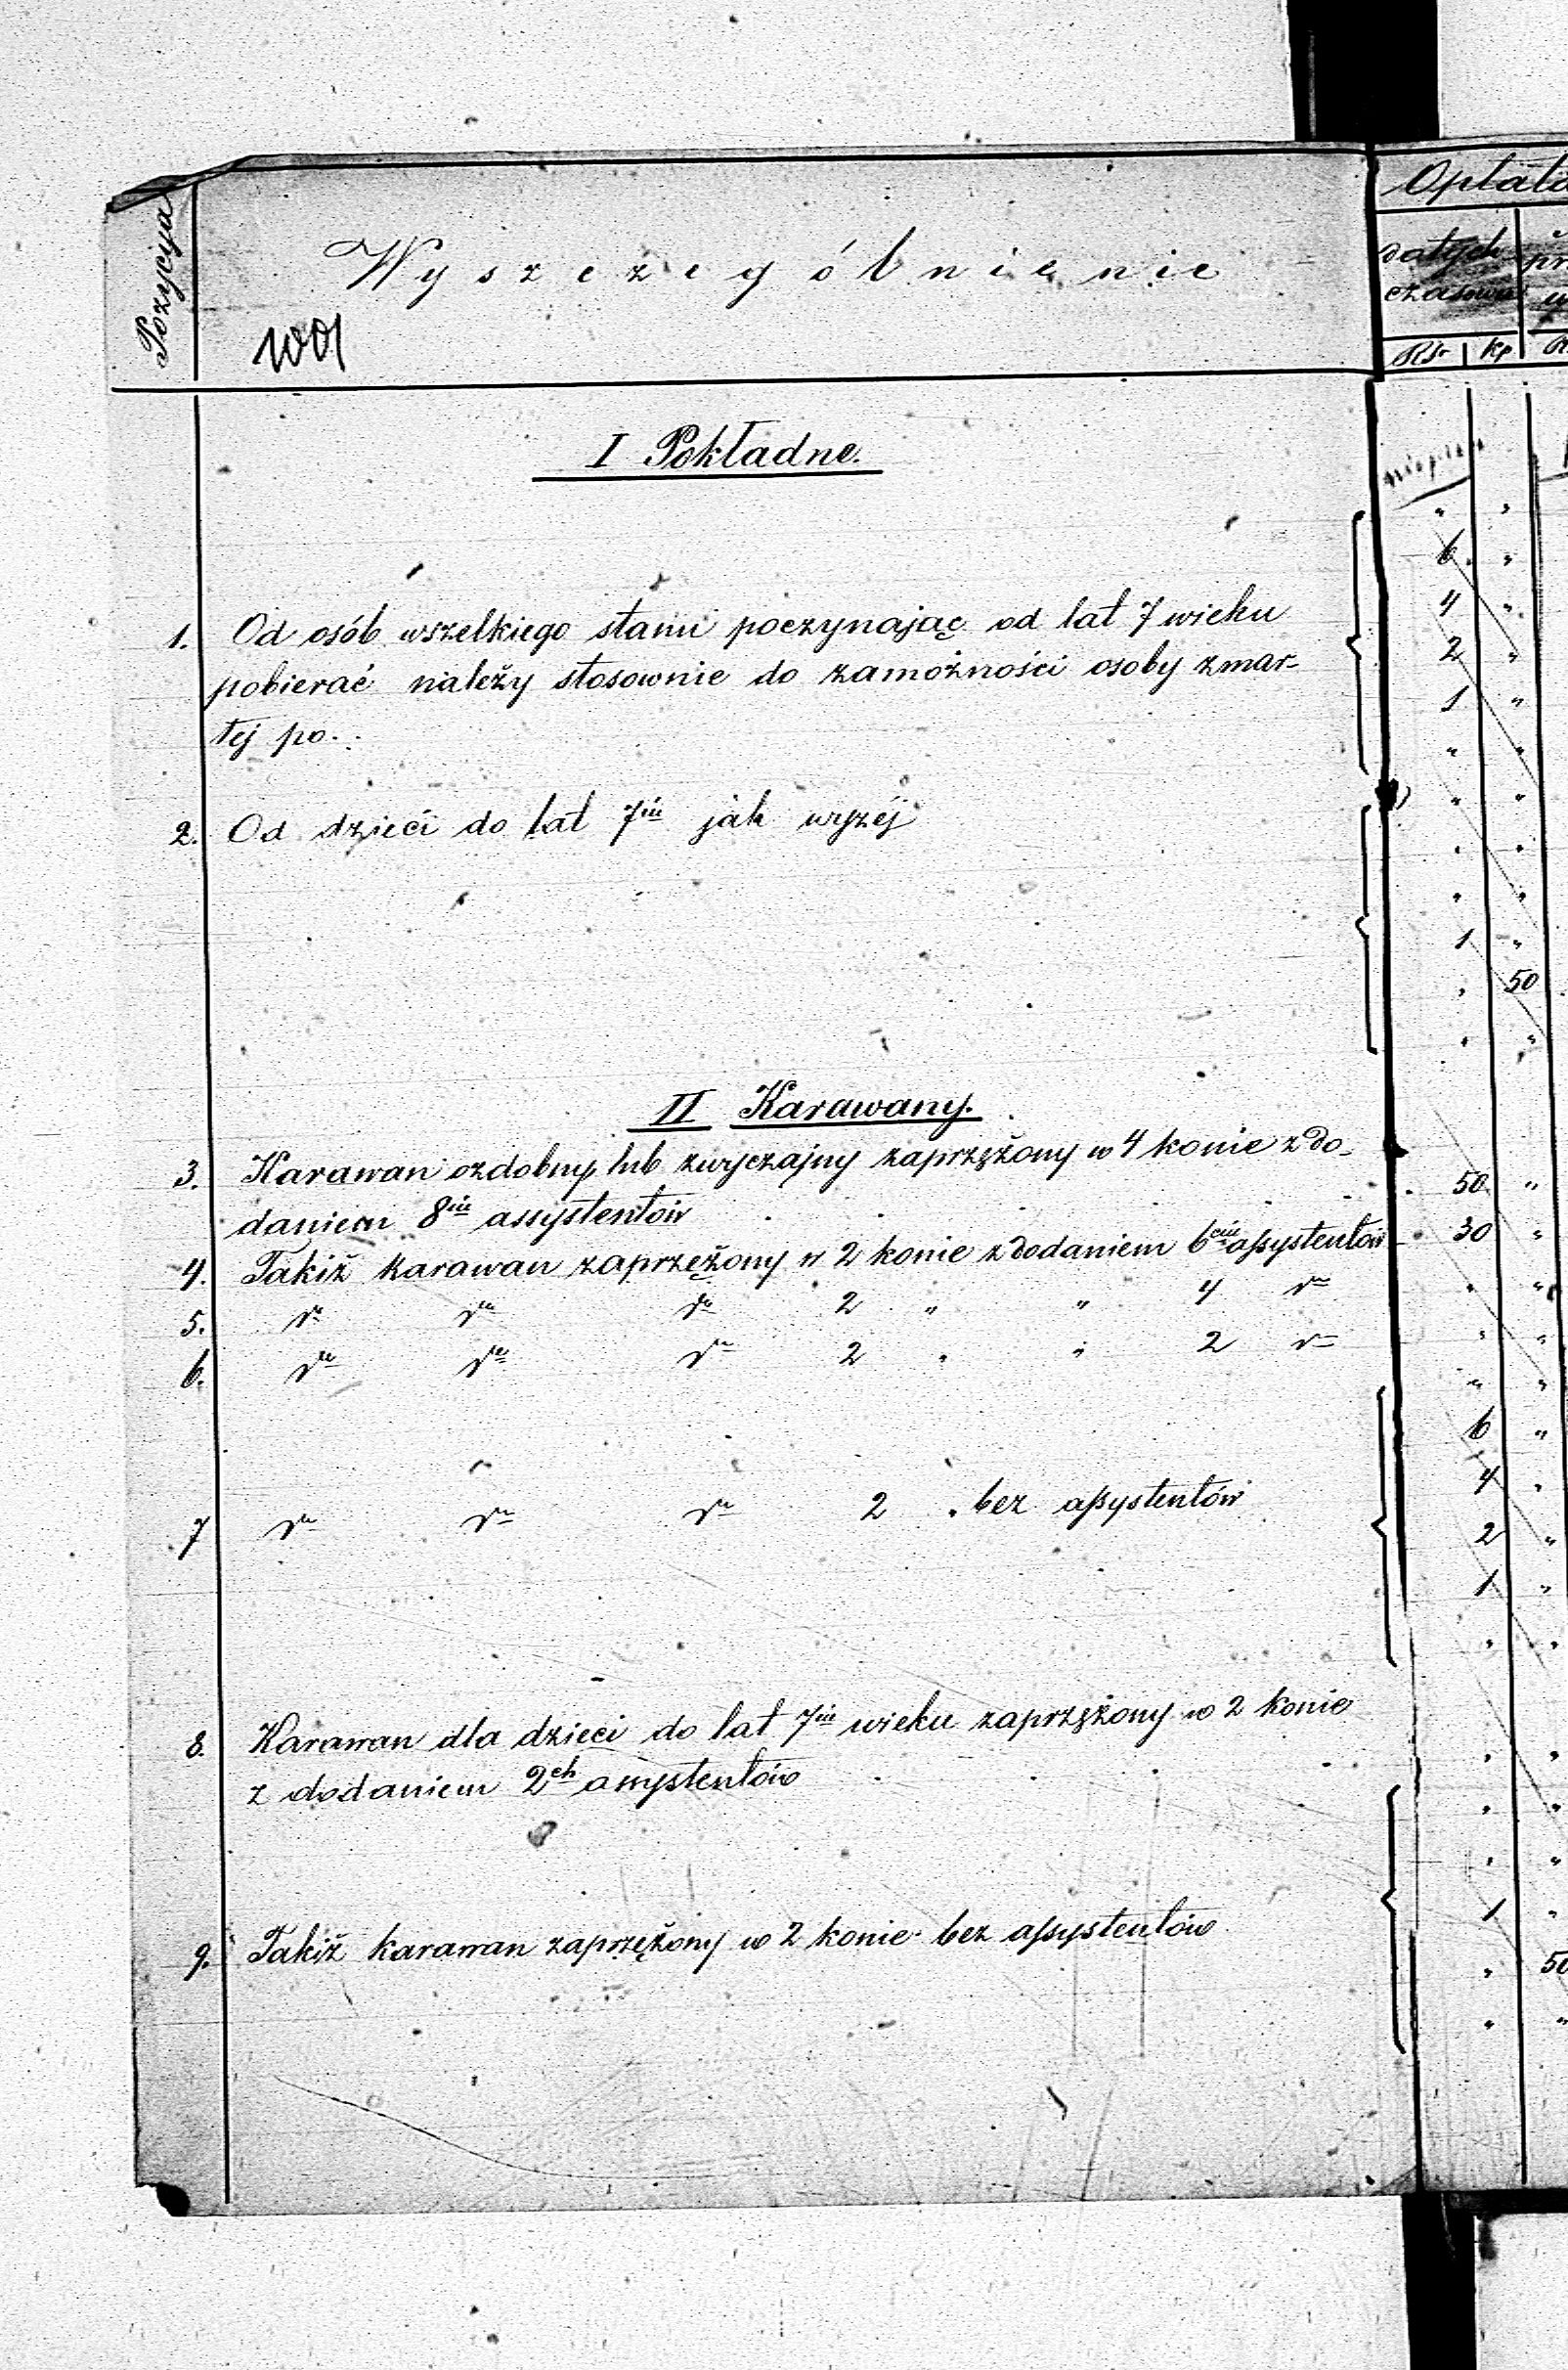 Pozycyja
Wyszczególnienie
Opłata
dotych
czasowa
Rs. kp
I Pokładne.
1. Od osób wszelkiego stanu poczynając od lat 7 wieku
pobierać należy stosownie do zamożności osoby zmar-
łej po.
" "
6 "
4 "
2 "
1 "
" "
2. Od dzieci do lat 7iu jak wyżéj
" "
" "
" "
1 "
" 50
" "
II Karawany.
3. Karawan ozdobny lub zwyczajny zaprzężony w 4 konie z do-
daniem 8iu assystentów 50 "
4. Takiż karawan zaprzężony w 2 konie z dodaniem 6ciu assystentów 30 "
5. do do do 2 " " 4 do " "
6. do do do 2 " " 2 do " "
7 do do do 2 " bez assystentów
" "
6 "
4 "
2 "
1 "
" "
8. Karawan dla dzieci do lat 7iu wieku zaprzężony w 2 konie
z dodaniem 2ch assystentów " "
9. Takiż karawan zaprzężony w 2 konie bez assystentów
" "
" "
1 "
" 50
" "